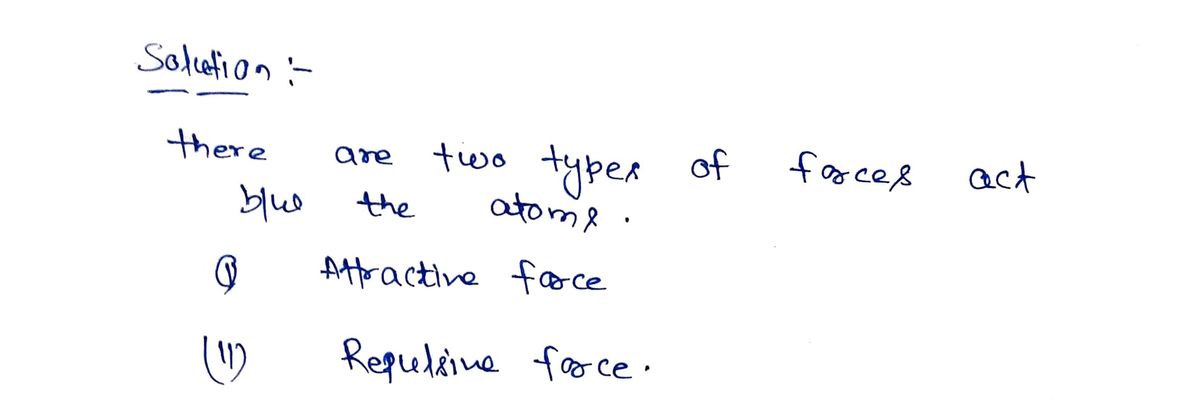 Solution :-
there are two types of forces act
b/w the atoms.
(i) Attractive force
(ii) Repulsive force.